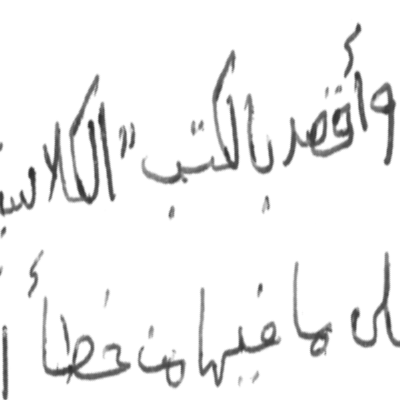 وأقصد بالكتب "الكلاسي
لى ما فيها من خطأ أ